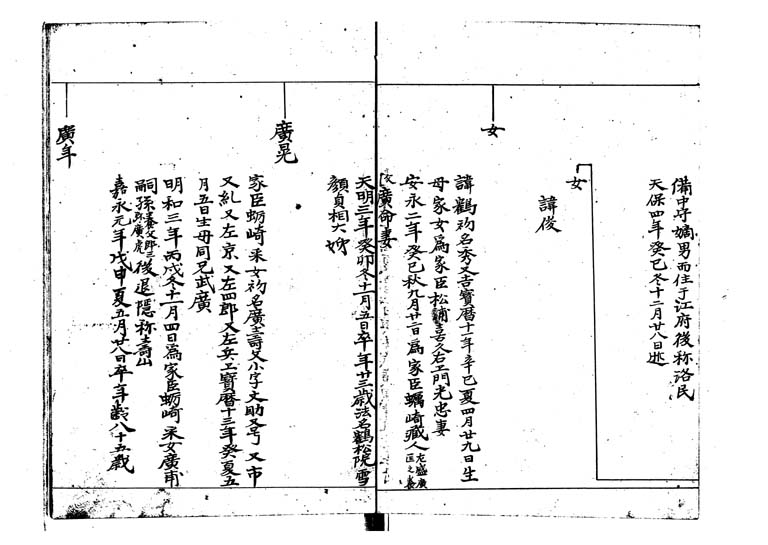 備中守嫡男而住于江府後称洛民
天保四年癸巳冬十二月廿八日逝
女
諱俊
女
諱鶴初名秀又吉寶暦十一年辛巳夏四月廿九日生
母家女為家臣松前喜久右エ門光忠妻
安永二年癸巳秋九月廿二日為家臣蠣崎藏人
広命妻
天明三年癸卯冬十一月五日卒年廿三歳法名鶴松院雪
顔貞相大姉
廣晃
家臣蛎崎采女初名廣壽又小字文助又弓又市
又糺又左京又左四郎又左兵エ寶暦十三年癸夏五
月五日生母同兄武廣
明和三年丙戌冬十一月四日為家臣蛎崎采女廣甫
嗣孫養父郎三弥廣虎後退隠称壽山
嘉永元年戊申夏五月廿八日卒年齢八十五歳
廣年